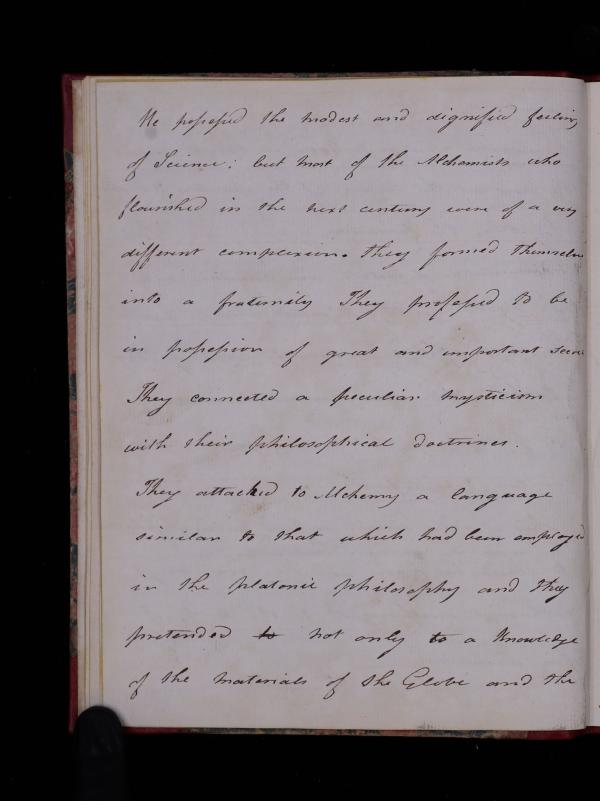 He possessed the modest and dignified feeling
of Science: but most of the Alchemists who
flourished in the next century were of a very
different complexion. They formed themselves
into a fraternity They professed to be
in possession of great and important secrets
They connected a peculiar mysticism
with their philosophical doctrines.
They attached to Alchemy a language
similar to that which had been employed
in the platonic philosophy and they
pretended to not only to a Knowledge
of the materials of the Globe and the